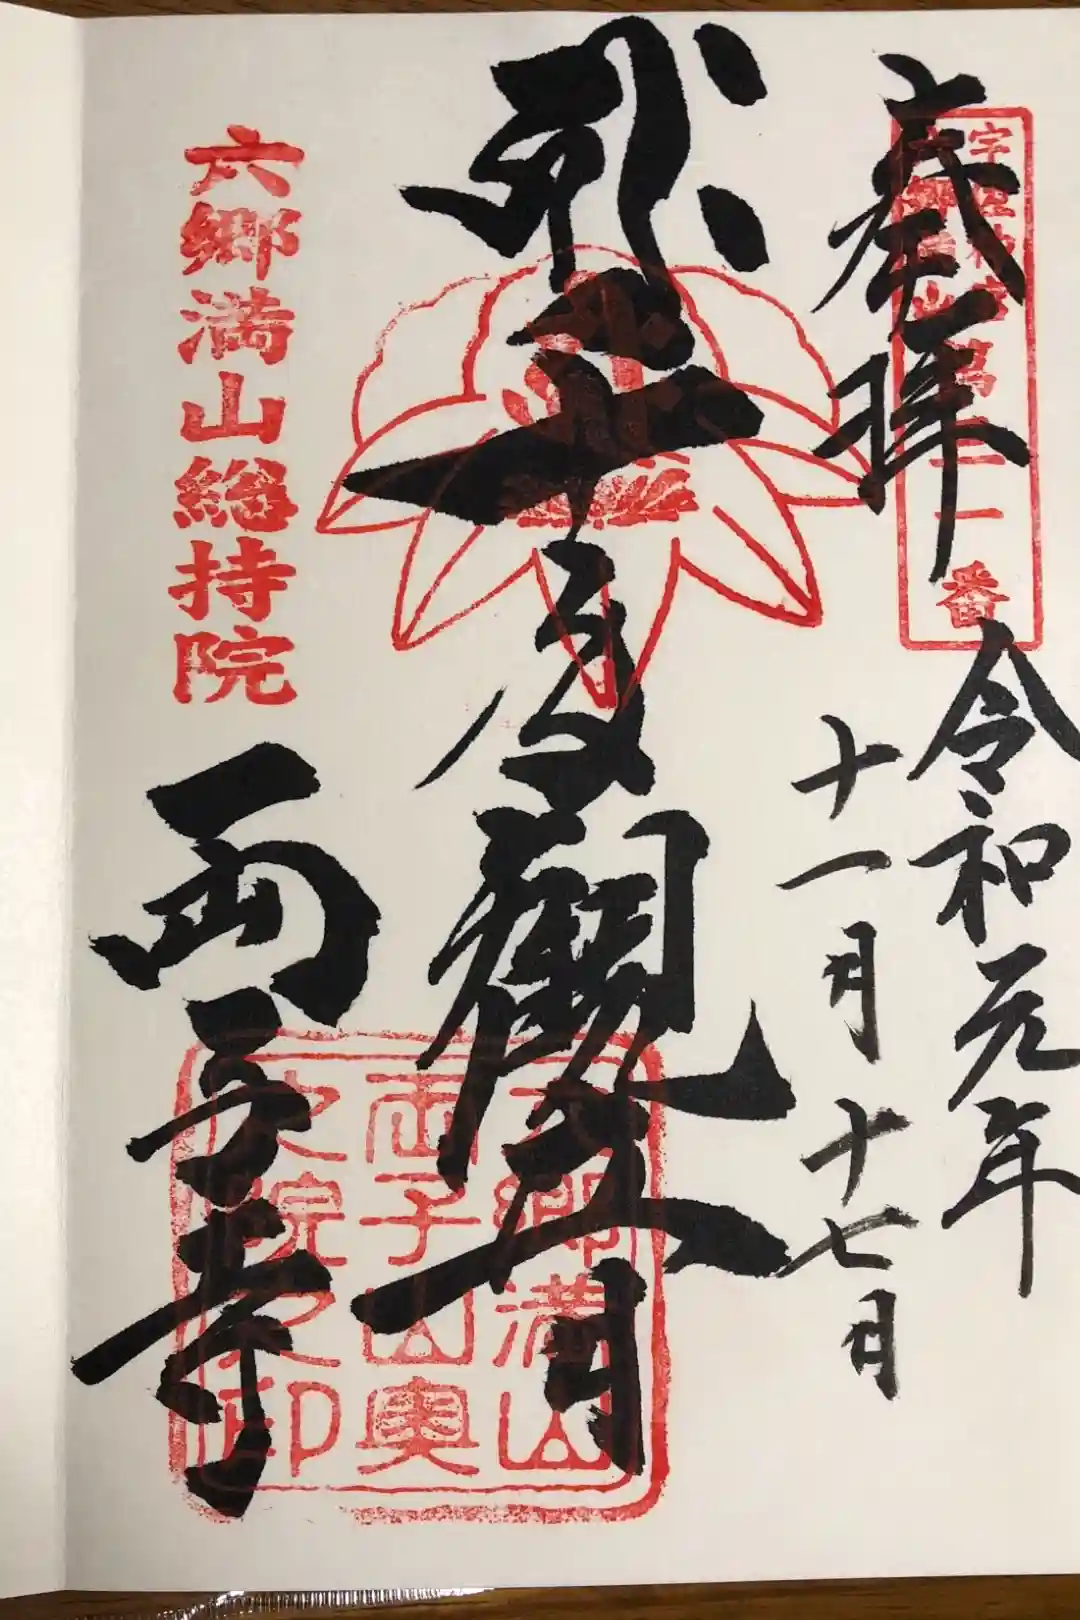 奉拝
令和元年
十一月十七日
宇佐神宮
六郷満山
番
觀音
六郷満山総持院
両子寺
六郷満山
両子山奥
之院之印